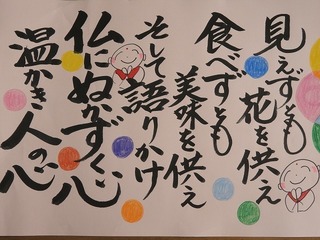 見えずとも
花を供え
食べずとも
美味を供え
そして語りかけ
仏にぬかずく心
温かき人の心